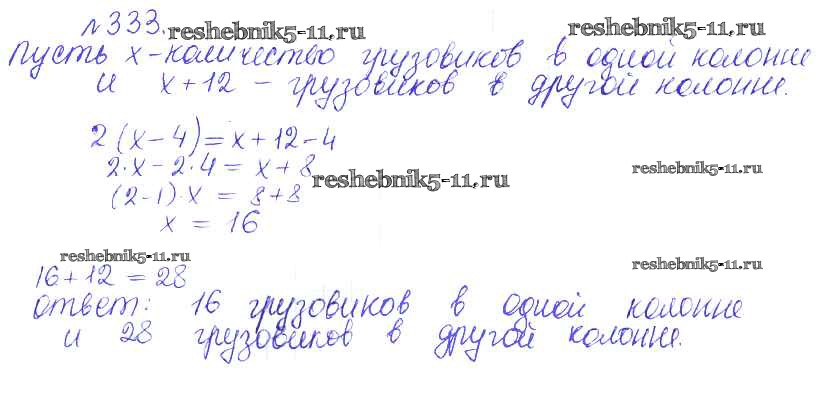 №333. reshebnik5-11.ru reshebnik5-11.ru
Пусть x-количество грузовиков в одной колонне
и x+12 - грузовиков в другой колонне.
2(x-4)=x+12-4
2·x-2·4=x+8 reshebnik5-11.ru
(2-1)·x = 8+8 reshebnik5-11.ru
x = 16
reshebnik5-11.ru reshebnik5-11.ru
16+12=28
ответ: 16 грузовиков в одной колонне
и 28 грузовиков в другой колонне.